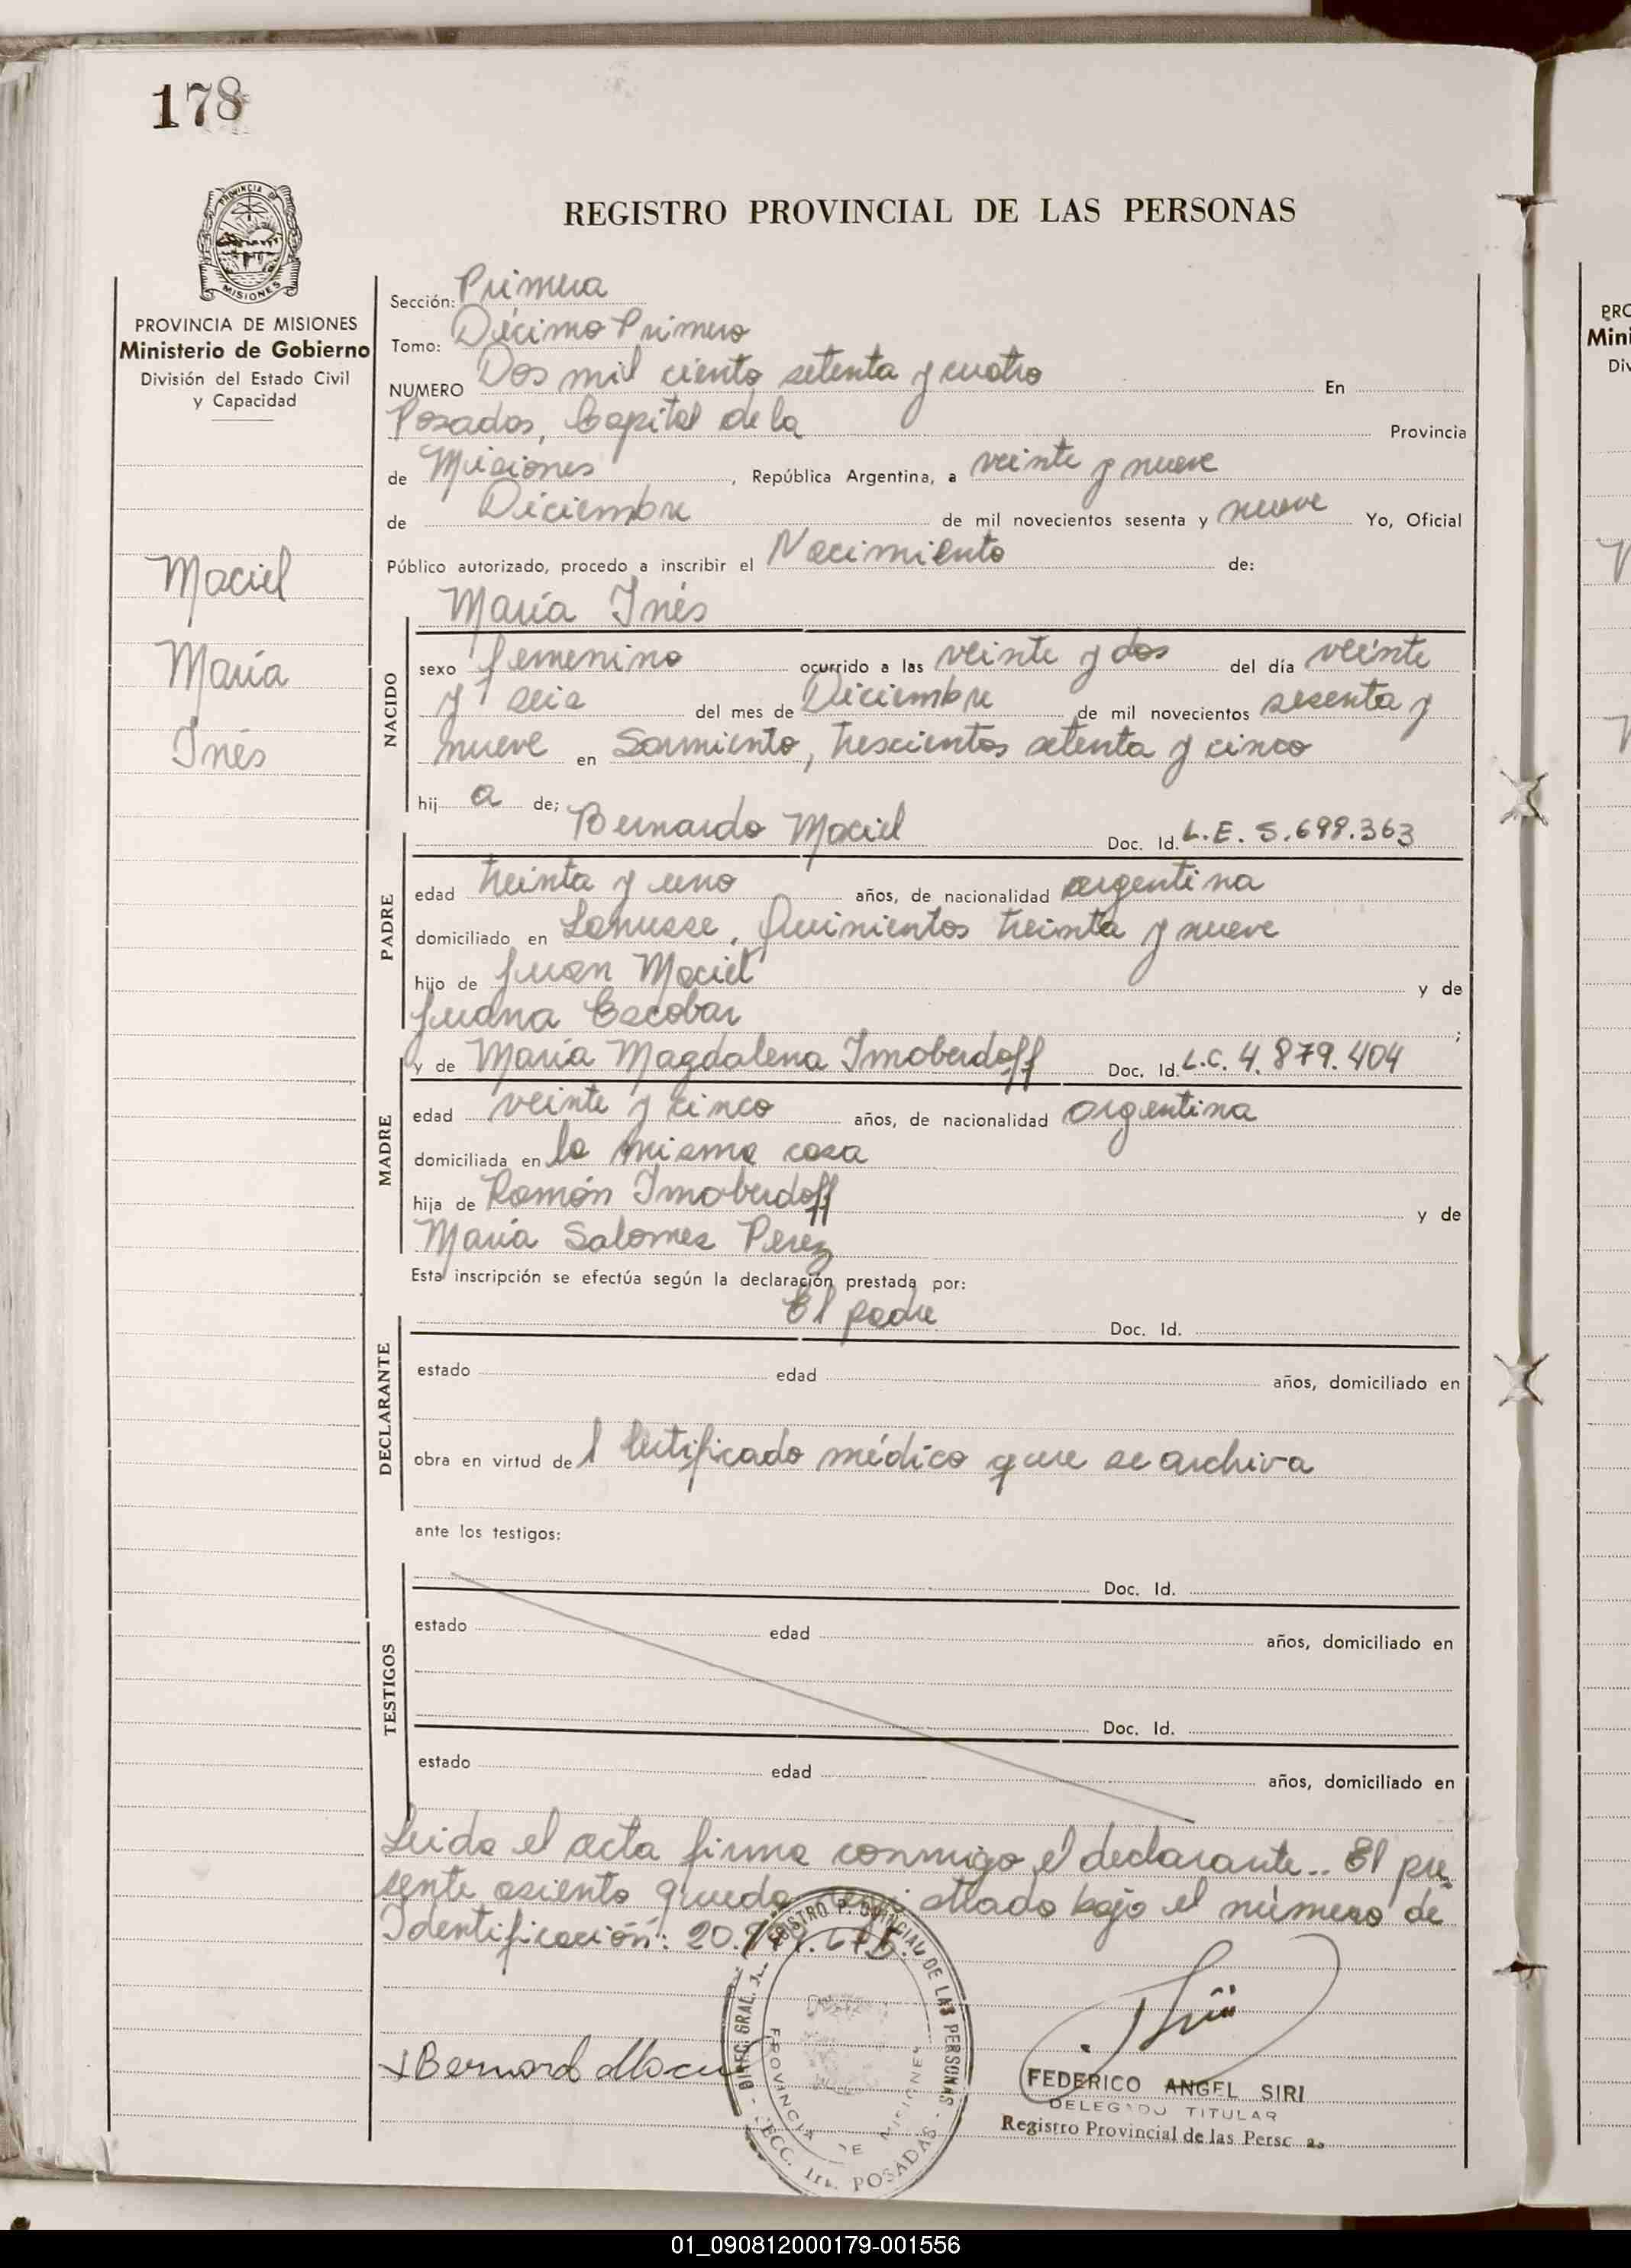 178
PROVINCIA DE
MISIONES
REGISTRO PROVINCIAL DE LAS PERSONAS
PROVINCIA DE MISIONES
Ministerio de Gobierno
División del Estado Civil
y Capacidad
Maciel
María
Inés
Sección: Primera
Tomo: Décimo Primero
NUMERO Dos mil ciento setenta y cuatro En
Posadas, Capital de la Provincia
de Misiones, República Argentina, a veinte y nueve
de Diciembre de mil novecientos sesenta y nueve Yo, Oficial
Público autorizado, procedo a inscribir el Nacimiento de:
María Inés
NACIDO
sexo femenino ocurrido a las veinte y dos del día veinte
y seis del mes de Diciembre de mil novecientos sesenta y
nueve en Sarmiento, trescientos setenta y cinco
hij a de;
Bernardo Maciel Doc. Id. L.E. 5.699.363
PADRE
edad treinta y uno años, de nacionalidad argentina
domiciliado en Lanusse, Quinientos treinta y nueve
hijo de Juan Maciel y de
Juana Escobar ;
y de María Magdalena Imoberdoff Doc. Id. L.C. 4.879.404
MADRE
edad veinte y cinco años, de nacionalidad argentina
domiciliada en la misma casa
hija de Ramón Imoberdoff y de
María Salomes Perez
Esta inscripción se efectúa según la declaración prestada por:
El padre Doc. Id.
DECLARANTE
estado edad años, domiciliado en
obra en virtud del Certificado médico que se archiva
ante los testigos:
TESTIGOS
Doc. Id.
estado edad años, domiciliado en
Doc. Id.
estado edad años, domiciliado en
Leida el acta firma conmigo el declarante.. El pre
sente asiento queda registrado bajo el número de
Identificación: 20.
DIREC. GRAL. REGISTRO PROVINCIAL DE LAS PERSONAS
PROVINCIA DE MISIONES
SECC. POSADAS
Bernardo Maciel
FEDERICO ANGEL SIRI
DELEGADO TITULAR
Registro Provincial de las Personas
PRO
Mini
Div
01_090812000179-001556